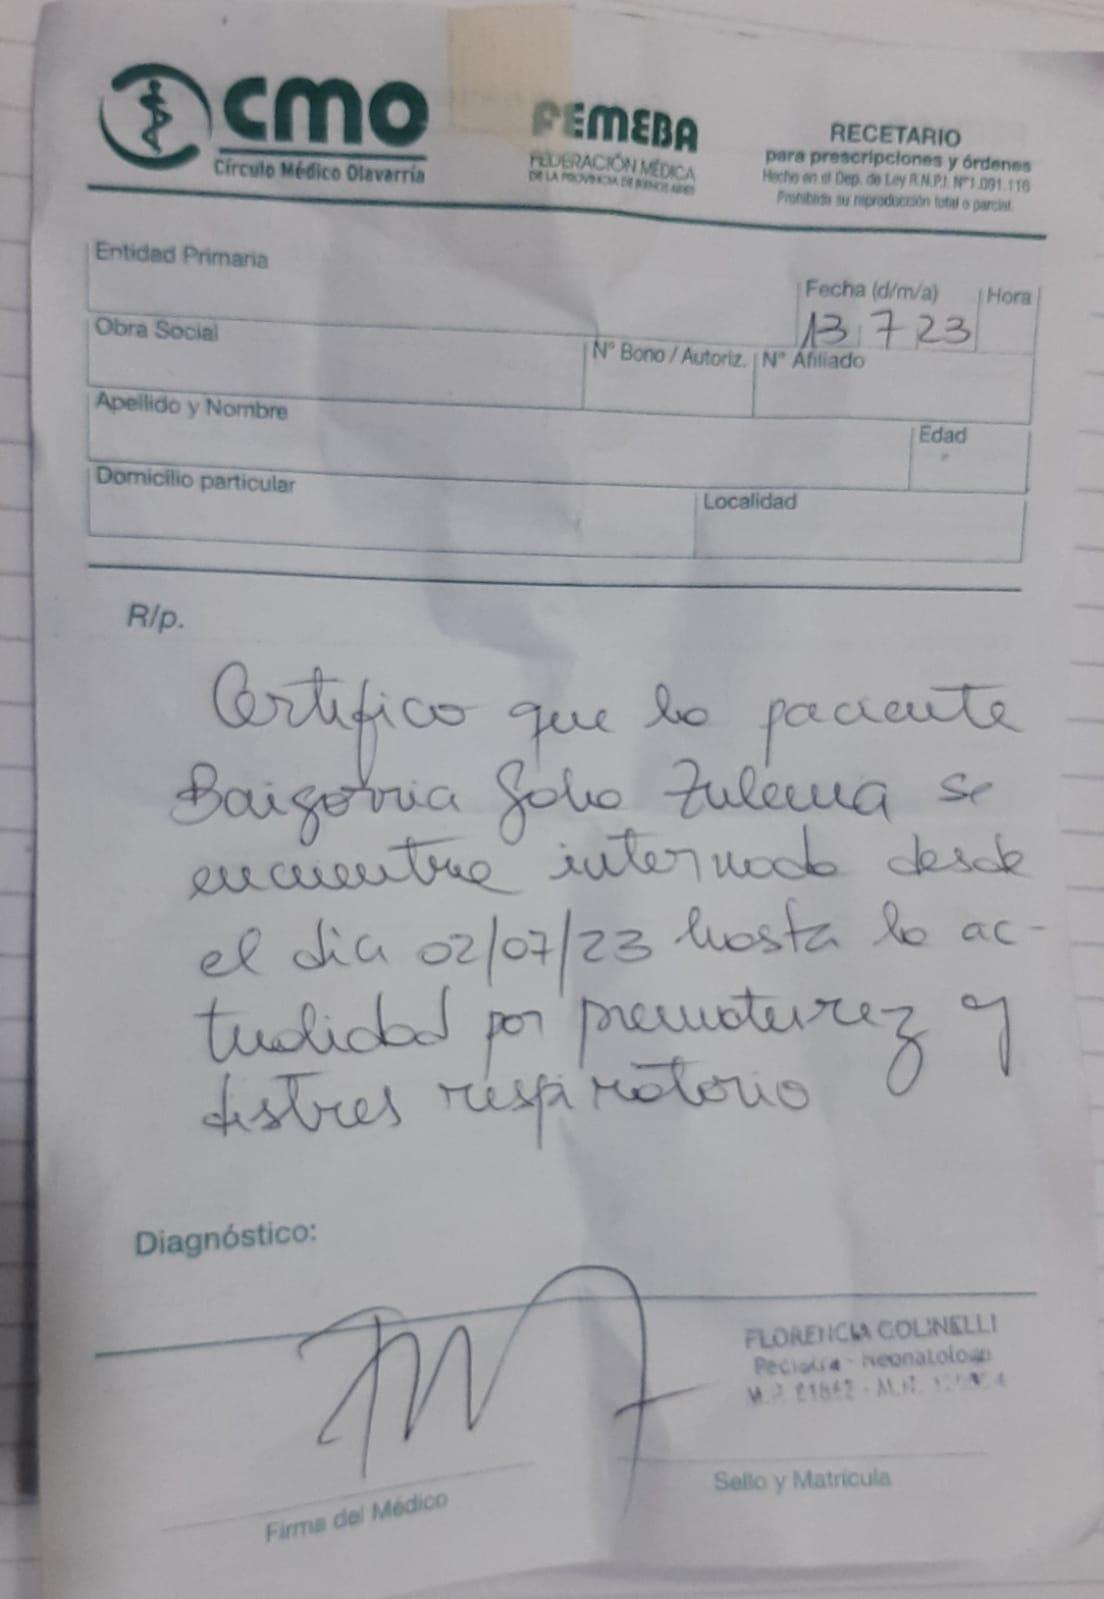 CMO
Círculo Médico Olavarría
FEMEBA
FEDERACIÓN MÉDICA
DE LA PROVINCIA DE BUENOS AIRES
RECETARIO
para prescripciones y órdenes
Hecho en el Dep. de Ley R.N.P.I. N° 1.091.116
Prohibida su reproducción total o parcial.
Entidad Primaria
Fecha (d/m/a) Hora
13 7 23
Obra Social
N° Bono / Autoriz. N° Afiliado
Apellido y Nombre
Edad
Domicilio particular
Localidad
R/p.
Certifico que la paciente
Baigorria Zulema se
encuentra internada desde
el dia 02/07/23 hasta la ac-
tualidad por prematurez y
distres respiratorio
Diagnóstico:
FLORENCIA GOLINELLI
Pediatra - Neonatologa
M.P. - M.N.
Firma del Médico
Sello y Matrícula